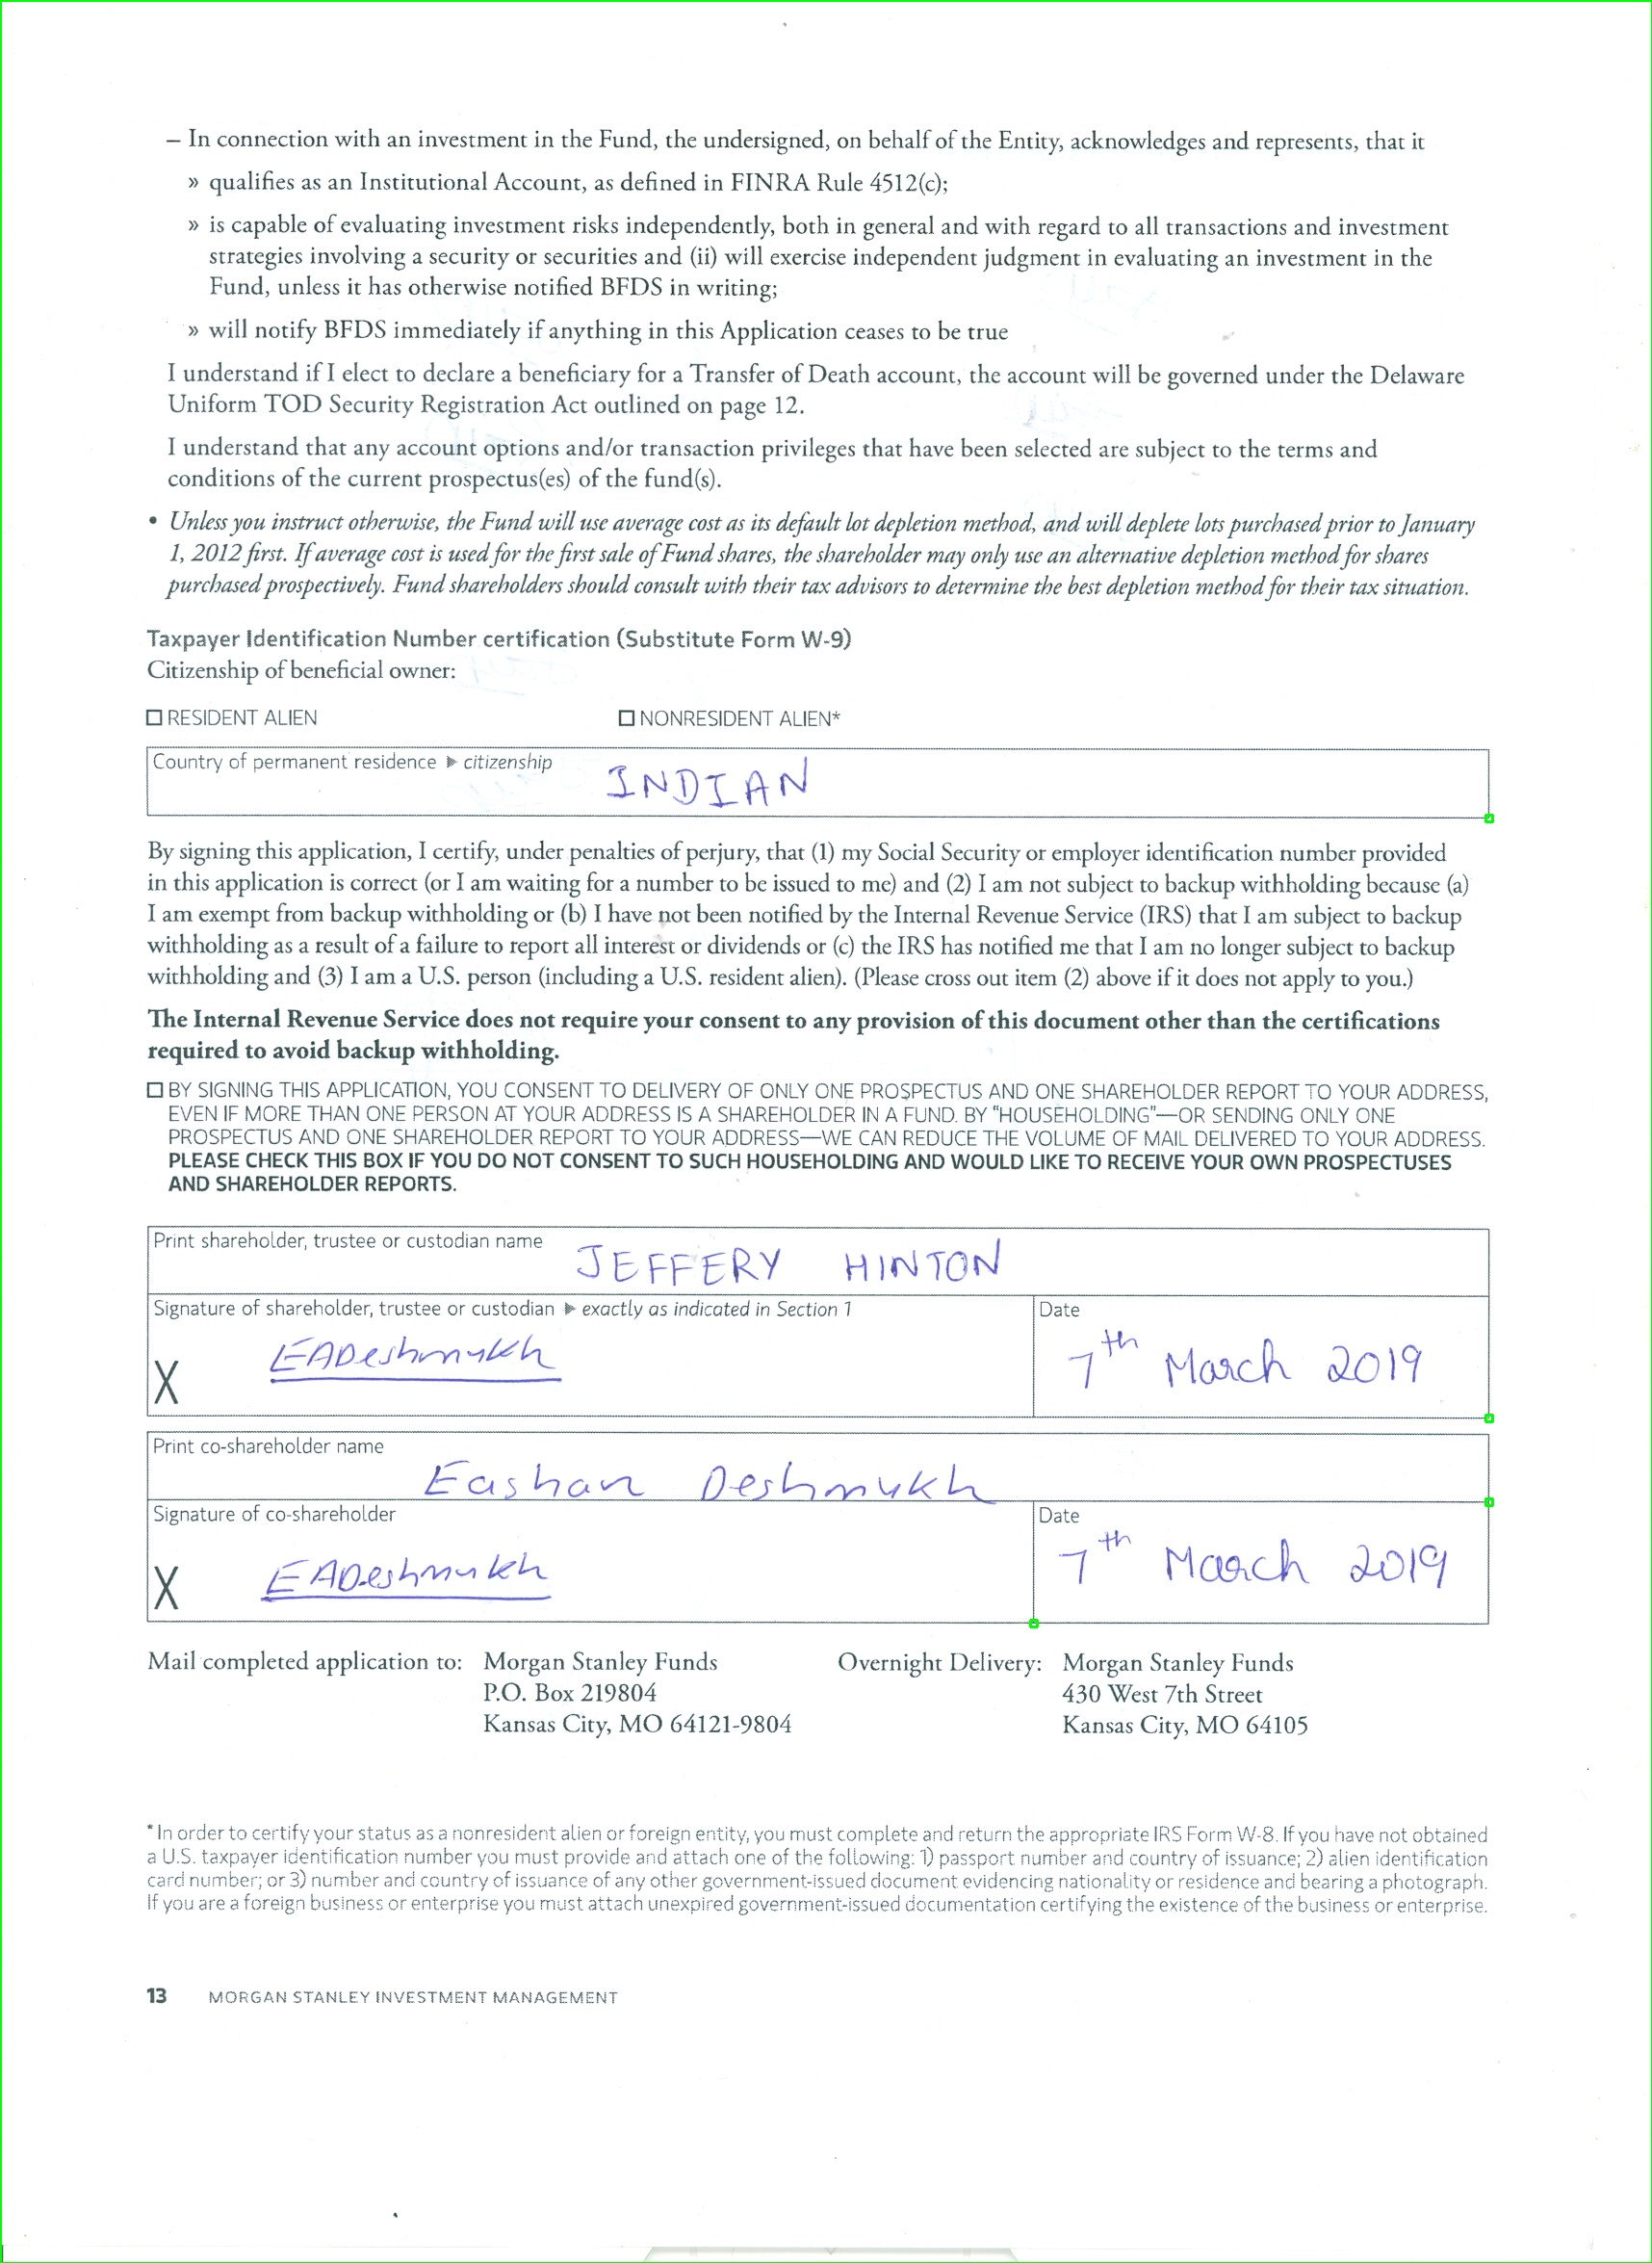 – In connection with an investment in the Fund, the undersigned, on behalf of the Entity, acknowledges and represents, that it
» qualifies as an Institutional Account, as defined in FINRA Rule 4512(c);
» is capable of evaluating investment risks independently, both in general and with regard to all transactions and investment
strategies involving a security or securities and (ii) will exercise independent judgment in evaluating an investment in the
Fund, unless it has otherwise notified BFDS in writing;
» will notify BFDS immediately if anything in this Application ceases to be true
I understand if I elect to declare a beneficiary for a Transfer of Death account, the account will be governed under the Delaware
Uniform TOD Security Registration Act outlined on page 12.
I understand that any account options and/or transaction privileges that have been selected are subject to the terms and
conditions of the current prospectus(es) of the fund(s).
• Unless you instruct otherwise, the Fund will use average cost as its default lot depletion method, and will deplete lots purchased prior to January
1, 2012 first. If average cost is used for the first sale of Fund shares, the shareholder may only use an alternative depletion method for shares
purchased prospectively. Fund shareholders should consult with their tax advisors to determine the best depletion method for their tax situation.
Taxpayer Identification Number certification (Substitute Form W-9)
Citizenship of beneficial owner:
☐ RESIDENT ALIEN ☐ NONRESIDENT ALIEN*
Country of permanent residence ▶ citizenship INDIAN
By signing this application, I certify, under penalties of perjury, that (1) my Social Security or employer identification number provided
in this application is correct (or I am waiting for a number to be issued to me) and (2) I am not subject to backup withholding because (a)
I am exempt from backup withholding or (b) I have not been notified by the Internal Revenue Service (IRS) that I am subject to backup
withholding as a result of a failure to report all interest or dividends or (c) the IRS has notified me that I am no longer subject to backup
withholding and (3) I am a U.S. person (including a U.S. resident alien). (Please cross out item (2) above if it does not apply to you.)
The Internal Revenue Service does not require your consent to any provision of this document other than the certifications
required to avoid backup withholding.
☐ BY SIGNING THIS APPLICATION, YOU CONSENT TO DELIVERY OF ONLY ONE PROSPECTUS AND ONE SHAREHOLDER REPORT TO YOUR ADDRESS,
EVEN IF MORE THAN ONE PERSON AT YOUR ADDRESS IS A SHAREHOLDER IN A FUND. BY "HOUSEHOLDING"—OR SENDING ONLY ONE
PROSPECTUS AND ONE SHAREHOLDER REPORT TO YOUR ADDRESS—WE CAN REDUCE THE VOLUME OF MAIL DELIVERED TO YOUR ADDRESS.
PLEASE CHECK THIS BOX IF YOU DO NOT CONSENT TO SUCH HOUSEHOLDING AND WOULD LIKE TO RECEIVE YOUR OWN PROSPECTUSES
AND SHAREHOLDER REPORTS.
Print shareholder, trustee or custodian name JEFFERY HINTON
Signature of shareholder, trustee or custodian ▶ exactly as indicated in Section 1 Date
X EADeshmukh 7th March 2019
Print co-shareholder name
Eashan Deshmukh
Signature of co-shareholder Date
X EADeshmukh 7th March 2019
Mail completed application to: Morgan Stanley Funds Overnight Delivery: Morgan Stanley Funds
P.O. Box 219804 430 West 7th Street
Kansas City, MO 64121-9804 Kansas City, MO 64105
*In order to certify your status as a nonresident alien or foreign entity, you must complete and return the appropriate IRS Form W-8. If you have not obtained
a U.S. taxpayer identification number you must provide and attach one of the following: 1) passport number and country of issuance; 2) alien identification
card number; or 3) number and country of issuance of any other government-issued document evidencing nationality or residence and bearing a photograph.
If you are a foreign business or enterprise you must attach unexpired government-issued documentation certifying the existence of the business or enterprise.
13 MORGAN STANLEY INVESTMENT MANAGEMENT